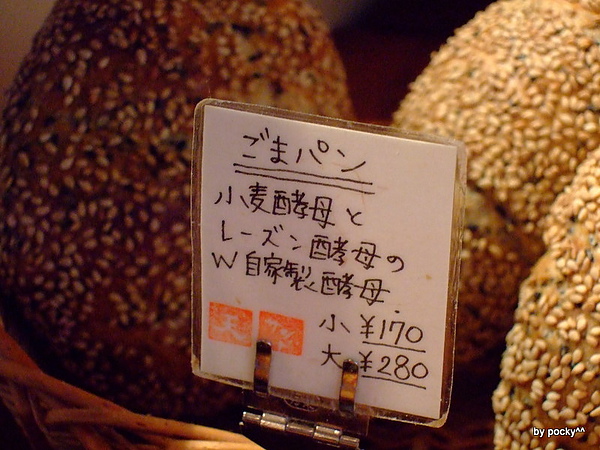 ごまパン
小麦酵母と
レーズン酵母の
W自家製酵母.
小 ¥170
天 サン
大 ¥280
by pocky^^